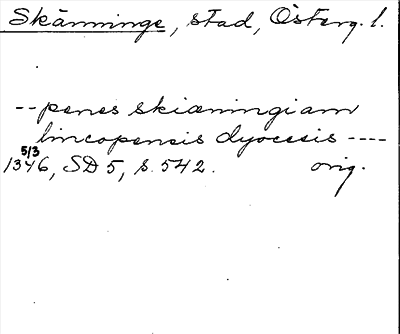 Skänninge, stad, Österg. l.
-- penes skiæningiam
lincopensis dyocesis ----
5/3
1346, SD 5, s. 542. orig.